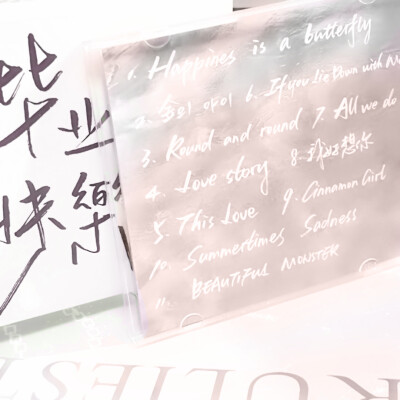 毕业
快樂
1. Happines is a butterfly
2. 숲의 아이 6. If you Lie Down with
3. Round and round 7. All we do
4. Love story 8. 我好想你
5. This Love 9. Cinnamon Girl
10. Summertimes Sadness
11. BEAUTIFUL MONSTER